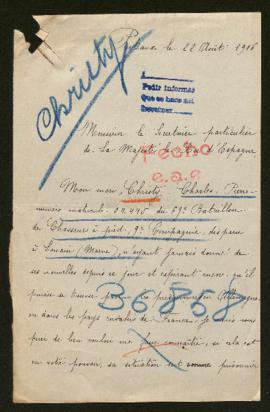 le 22 Août 1916
Christy
Pedir informes
Que se haga así
Monsieur le Secrétaire particulier
de Sa Majesté le Roi d'Espagne
Hecho
e.a.e
Mon mari Christy, Charles, Pierre
du 59e Bataillon
de Chasseurs à pied, 9e Compagnie, disparu
à Souain (Marne), n'ayant jamais donné de
ses nouvelles depuis ce jour et espérant encore, qu'il
puisse se trouver les prisonniers en Allemagne
ou dans les pays envahis de France, je viens vous
36858
prier de bien vouloir me faire connaître, si cela est
en votre pouvoir, sa situation comme prisonnier